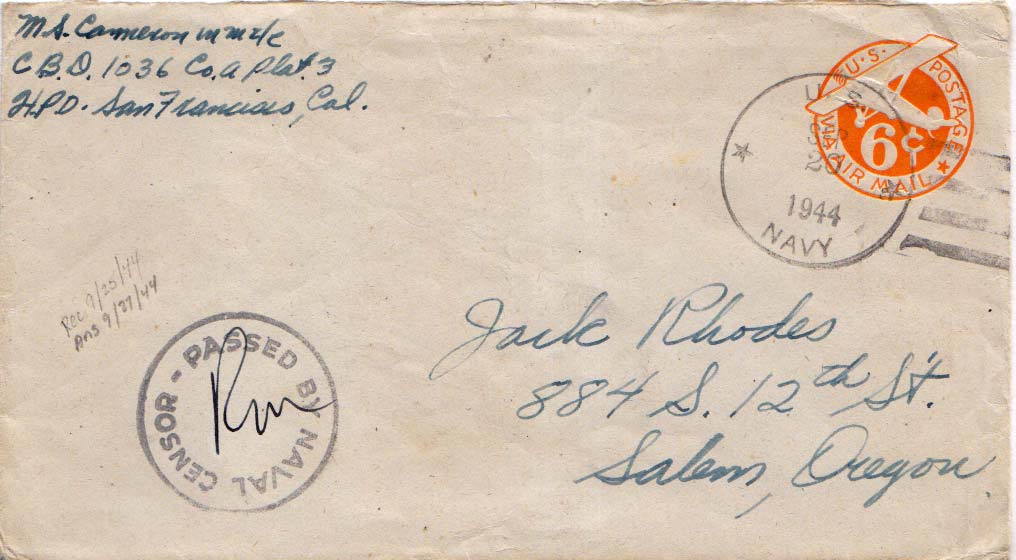 M.S. Cameron m m 2/c
C.B.D. 1036 Co. A Plat. 3
F.P.O. San Francisco, Cal.
U.S. POSTAGE
6¢
VIA AIR MAIL
U.S.
20
1944
NAVY
Rec 9/25/44
Ans 9/27/44
PASSED BY NAVAL CENSOR -
Jack Rhodes
884 S. 12th St.
Salem, Oregon.